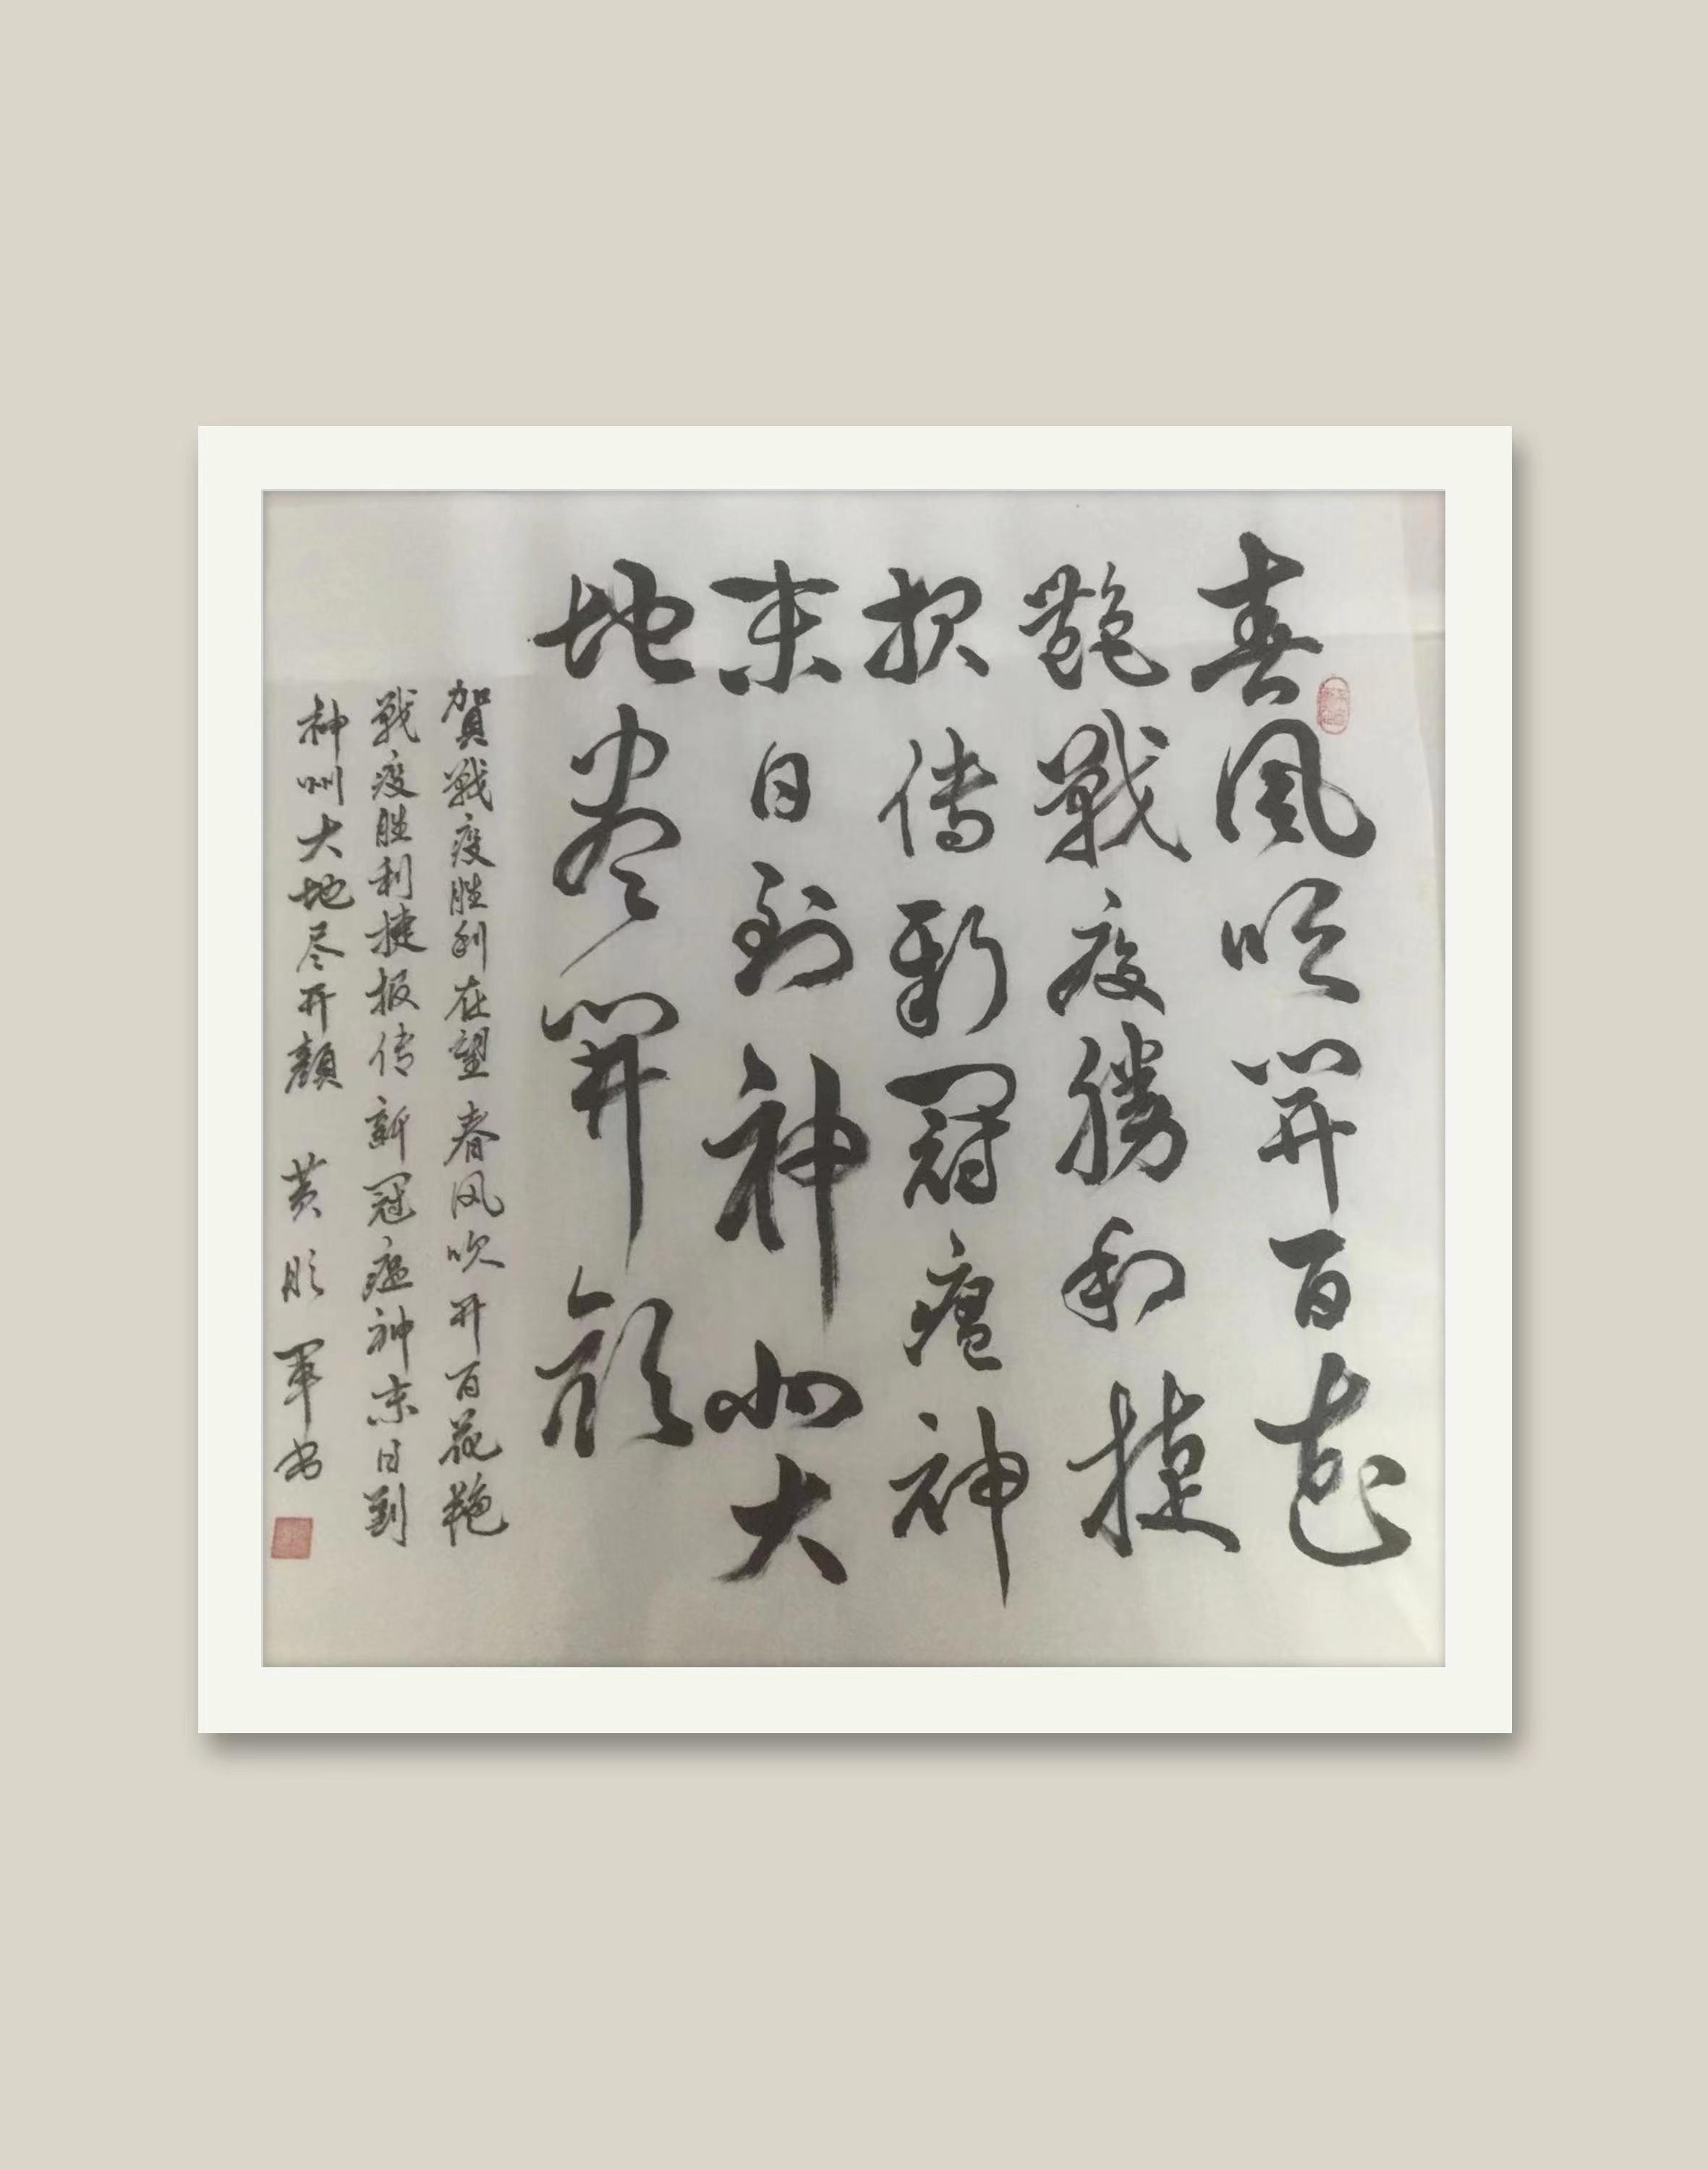 春風吹開百花
艷戰疫勝利捷
报传新冠瘟神
末日到神州大
地尽開顔
賀戰疫胜利在望 春风吹开百花艳
戰疫胜利捷报传 新冠瘟神末日到
神州大地尽开颜 黄彤軍书